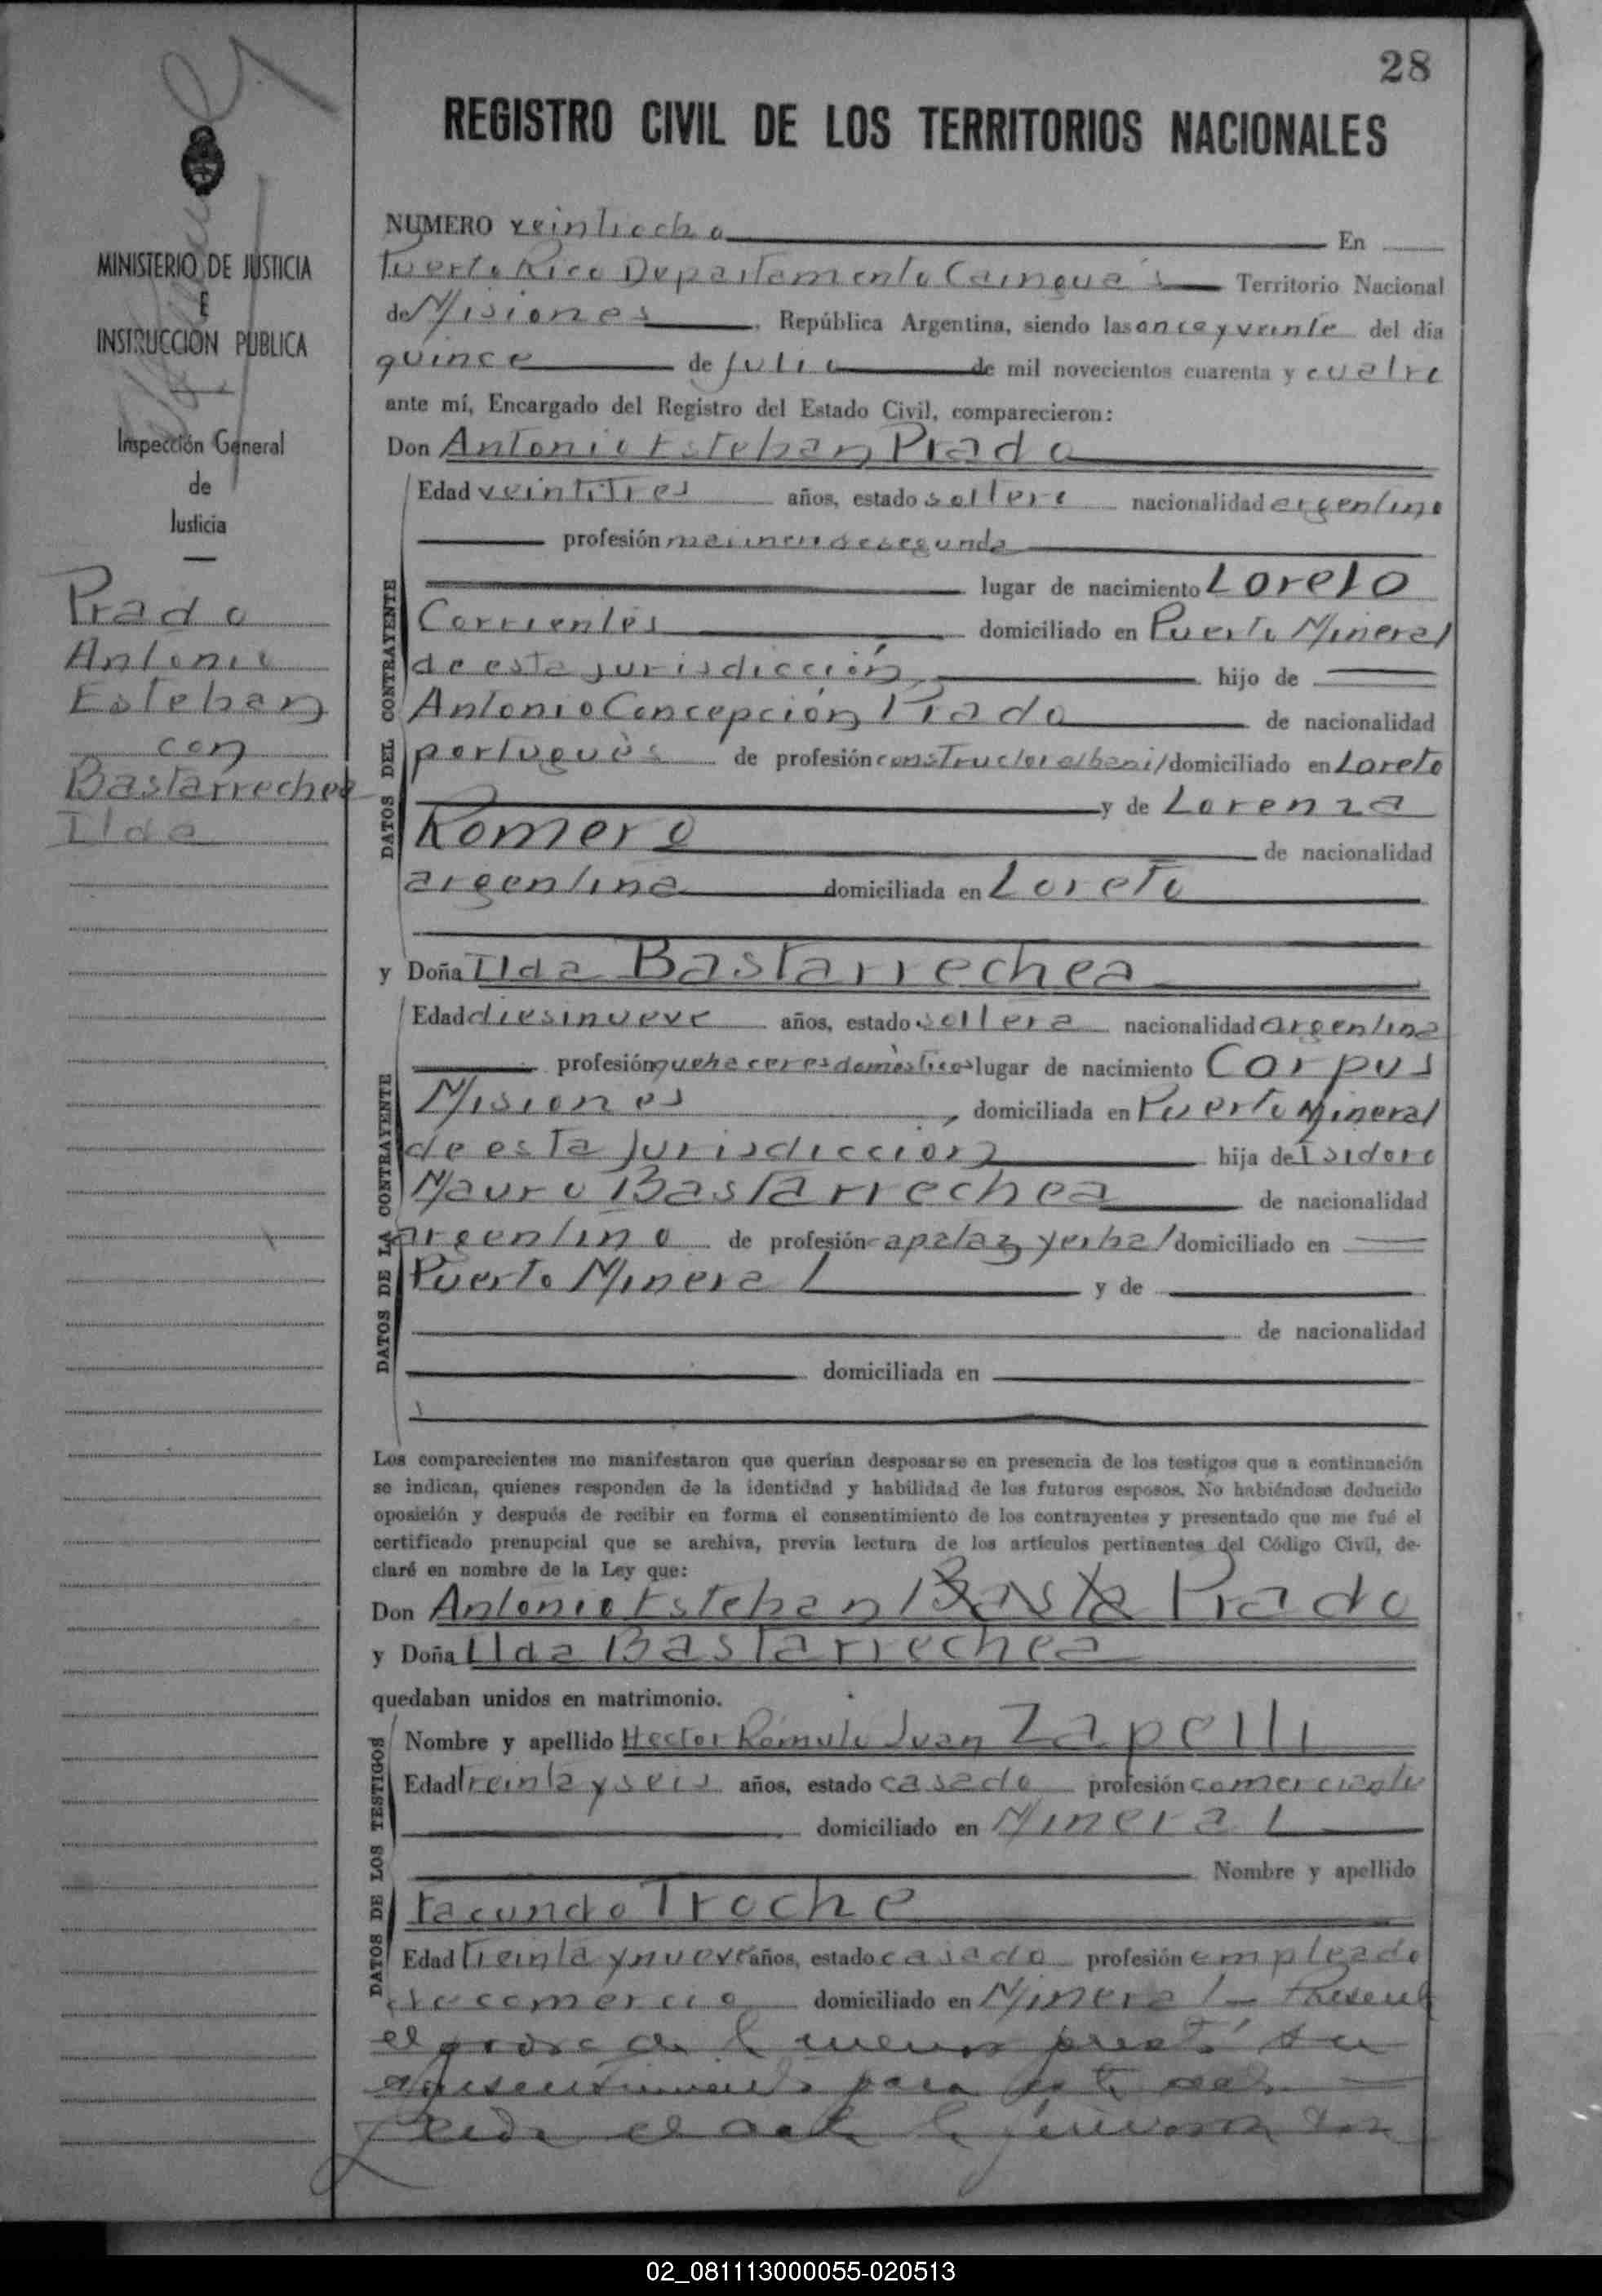 28
REGISTRO CIVIL DE LOS TERRITORIOS NACIONALES
MINISTERIO DE JUSTICIA
E
INSTRUCCIÓN PÚBLICA
Inspección General
de
Justicia
Prado
Antonio
Esteban
con
Bastarrechea
Ilda
NUMERO veintiocho En
Puerto Rico Departamento Cainguás Territorio Nacional
de Misiones, República Argentina, siendo las once y veinte del día
quince de julio de mil novecientos cuarenta y cuatro
ante mí, Encargado del Registro del Estado Civil, comparecieron:
Don Antonio Esteban Prado
DATOS DEL CONTRAYENTE
Edad veintitres años, estado soltero nacionalidad argentino
profesión marinero de segunda
lugar de nacimiento Loreto
Corrientes domiciliado en Puerto Mineral
de esta jurisdicción, hijo de
Antonio Concepción Prado de nacionalidad
portugués de profesión constructor albañil domiciliado en Loreto
y de Lorenza
Romero de nacionalidad
argentina domiciliada en Loreto
y Doña Ilda Bastarrechea
DATOS DE LA CONTRAYENTE
Edad diesinueve años, estado soltera nacionalidad argentina
profesión quehaceres domésticos lugar de nacimiento Corpus
Misiones, domiciliada en Puerto Mineral
de esta jurisdicción hija de Isidoro
Mauro Bastarrechea de nacionalidad
argentino de profesión capataz yerbal domiciliado en
Puerto Mineral y de
de nacionalidad
domiciliada en
Los comparecientes me manifestaron que querían desposarse en presencia de los testigos que a continuación
se indican, quienes responden de la identidad y habilidad de los futuros esposos. No habiéndose deducido
oposición y después de recibir en forma el consentimiento de los contrayentes y presentado que me fué el
certificado prenupcial que se archiva, previa lectura de los artículos pertinentes del Código Civil, de-
claré en nombre de la Ley que:
Don Antonio Esteban Basta Prado
y Doña Ilda Bastarrechea
quedaban unidos en matrimonio.
DATOS DE LOS TESTIGOS
Nombre y apellido Hector Rómulo Juan Zapelli
Edad treinta y seis años, estado casado profesión comerciante
domiciliado en Mineral
Nombre y apellido
Facundo Troche
Edad treinta y nueve años, estado casado profesión empleado
de comercio domiciliado en Mineral - Presente
el padre de la menor prestó su
consentimiento para este acto.
Leida el acta la firmaron con
02_081113000055-020513